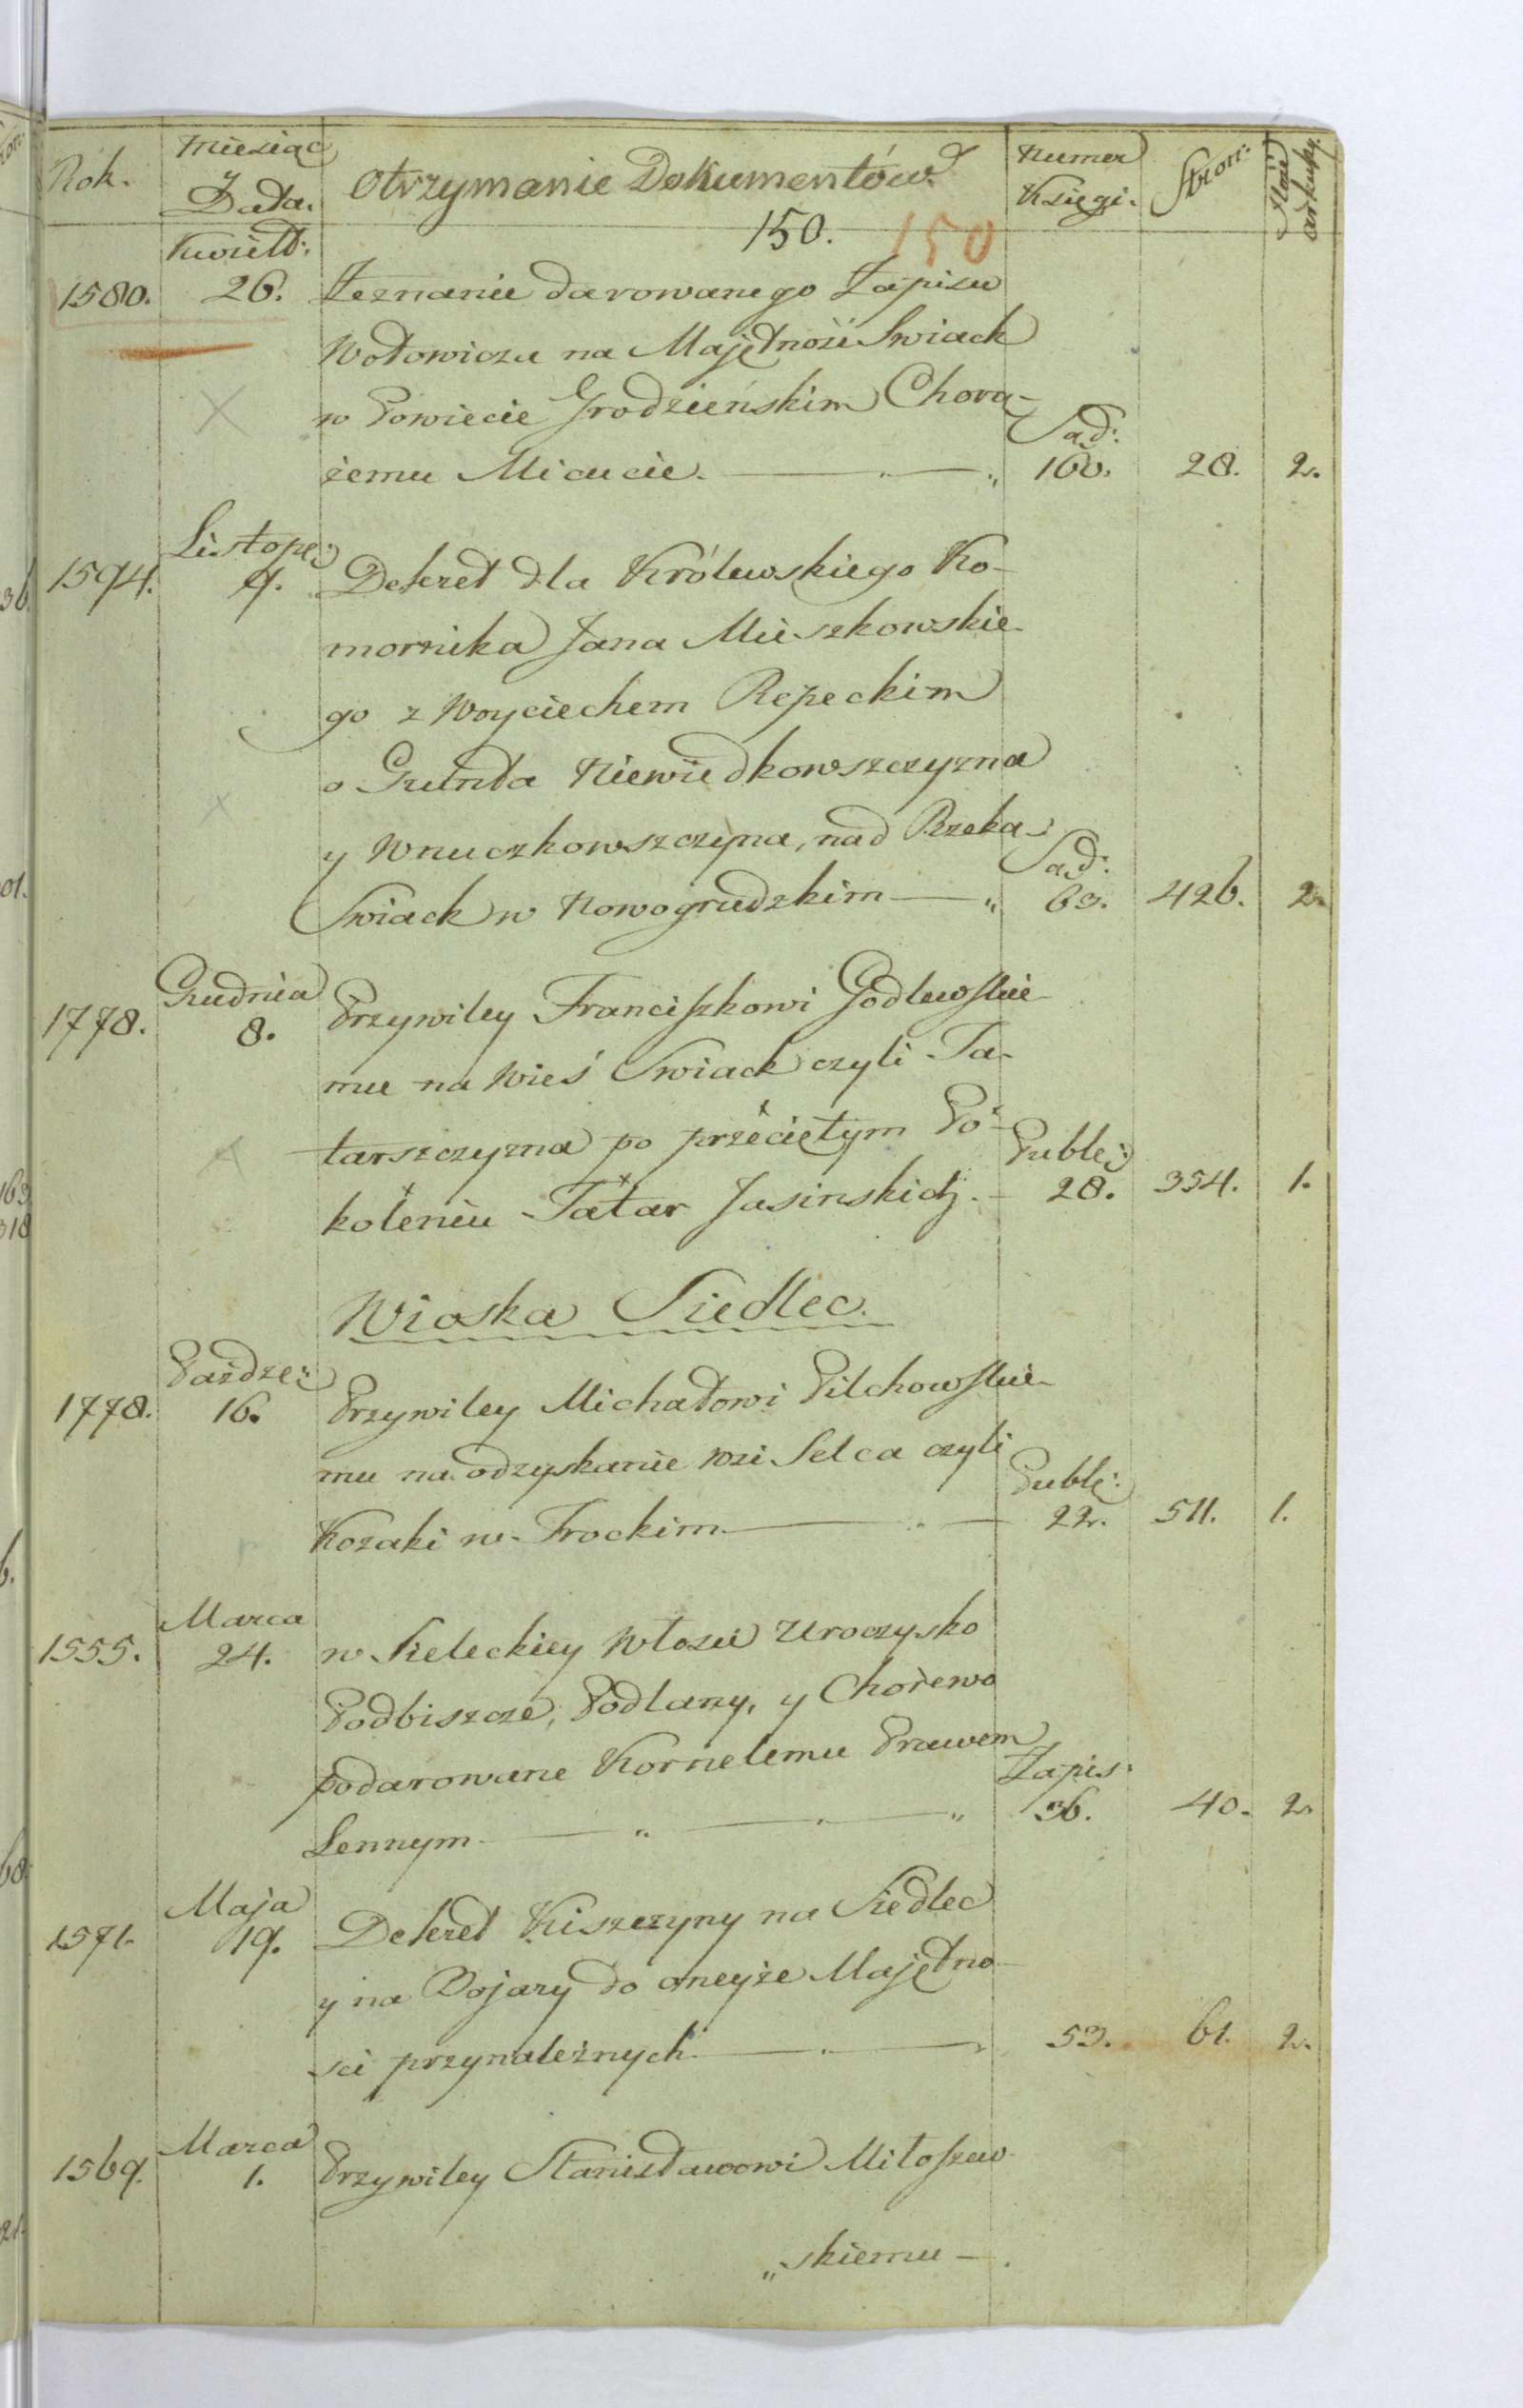 Rok.
Miesiąc
y
Data.
Otrzymanie Dokumentów.
Numer
Księgi.
Stron:
Ilość
arkuszy.
150. 150
Kwiet:
1580. 26. Zeznanie darowanego Zapisu
Wołowicza na Majętność Swiack
w Powiecie Grodzieńskim Chorą-
żemu Micucie. Sąd: 160. 28. 2.
Listop:
1594. 9. Dekret dla Królewskiego Ko-
mornika Jana Mieszkowskie-
go z Woyciechem Repeckim
o Grunta Niewiedkowszczyzna
y Wnuczkowszczyzna, nad Rzeką
Swiack w Nowogrudzkim Sąd: 63. 426. 2.
Grudnia
1778. 8. Przywiley Franciszkowi Godlewskie-
mu na Wieś Swiack czyli Ta-
tarszczyzna po przeciętym Po-
koleniu Tatar Jasinskich. Publ: 28. 354. 1.
Wioska Siedlec.
Paździe:
1778. 16. Przywiley Michałowi Pilchowskie-
mu na odzyskanie Wsi Selca czyli
Kozaki w Trockim. Publ: 22. 511. 1.
Marca
1555. 24. w Sieleckiey Włosci Uroczysko
Podbiszcze, Podlazy, y Chorewo
podarowane Kornelemu Prawem
Lennym. Zapis: 36. 40. 2.
Maja
1571. 19. Dekret Kiszczyny na Siedlec
y na Bojary do oneyże Majętno-
sci przynależnych. 53. 61. 2.
Marca
1569. 1. Przywiley Stanisławowi Miłoszew-
„skiemu